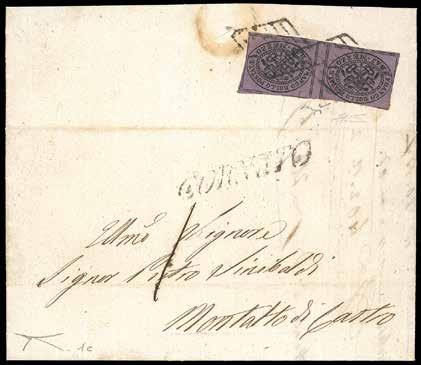 CORNETO
Illmo Signore
Signor Pietro Sinibaldi
Montalto di Castro
1c